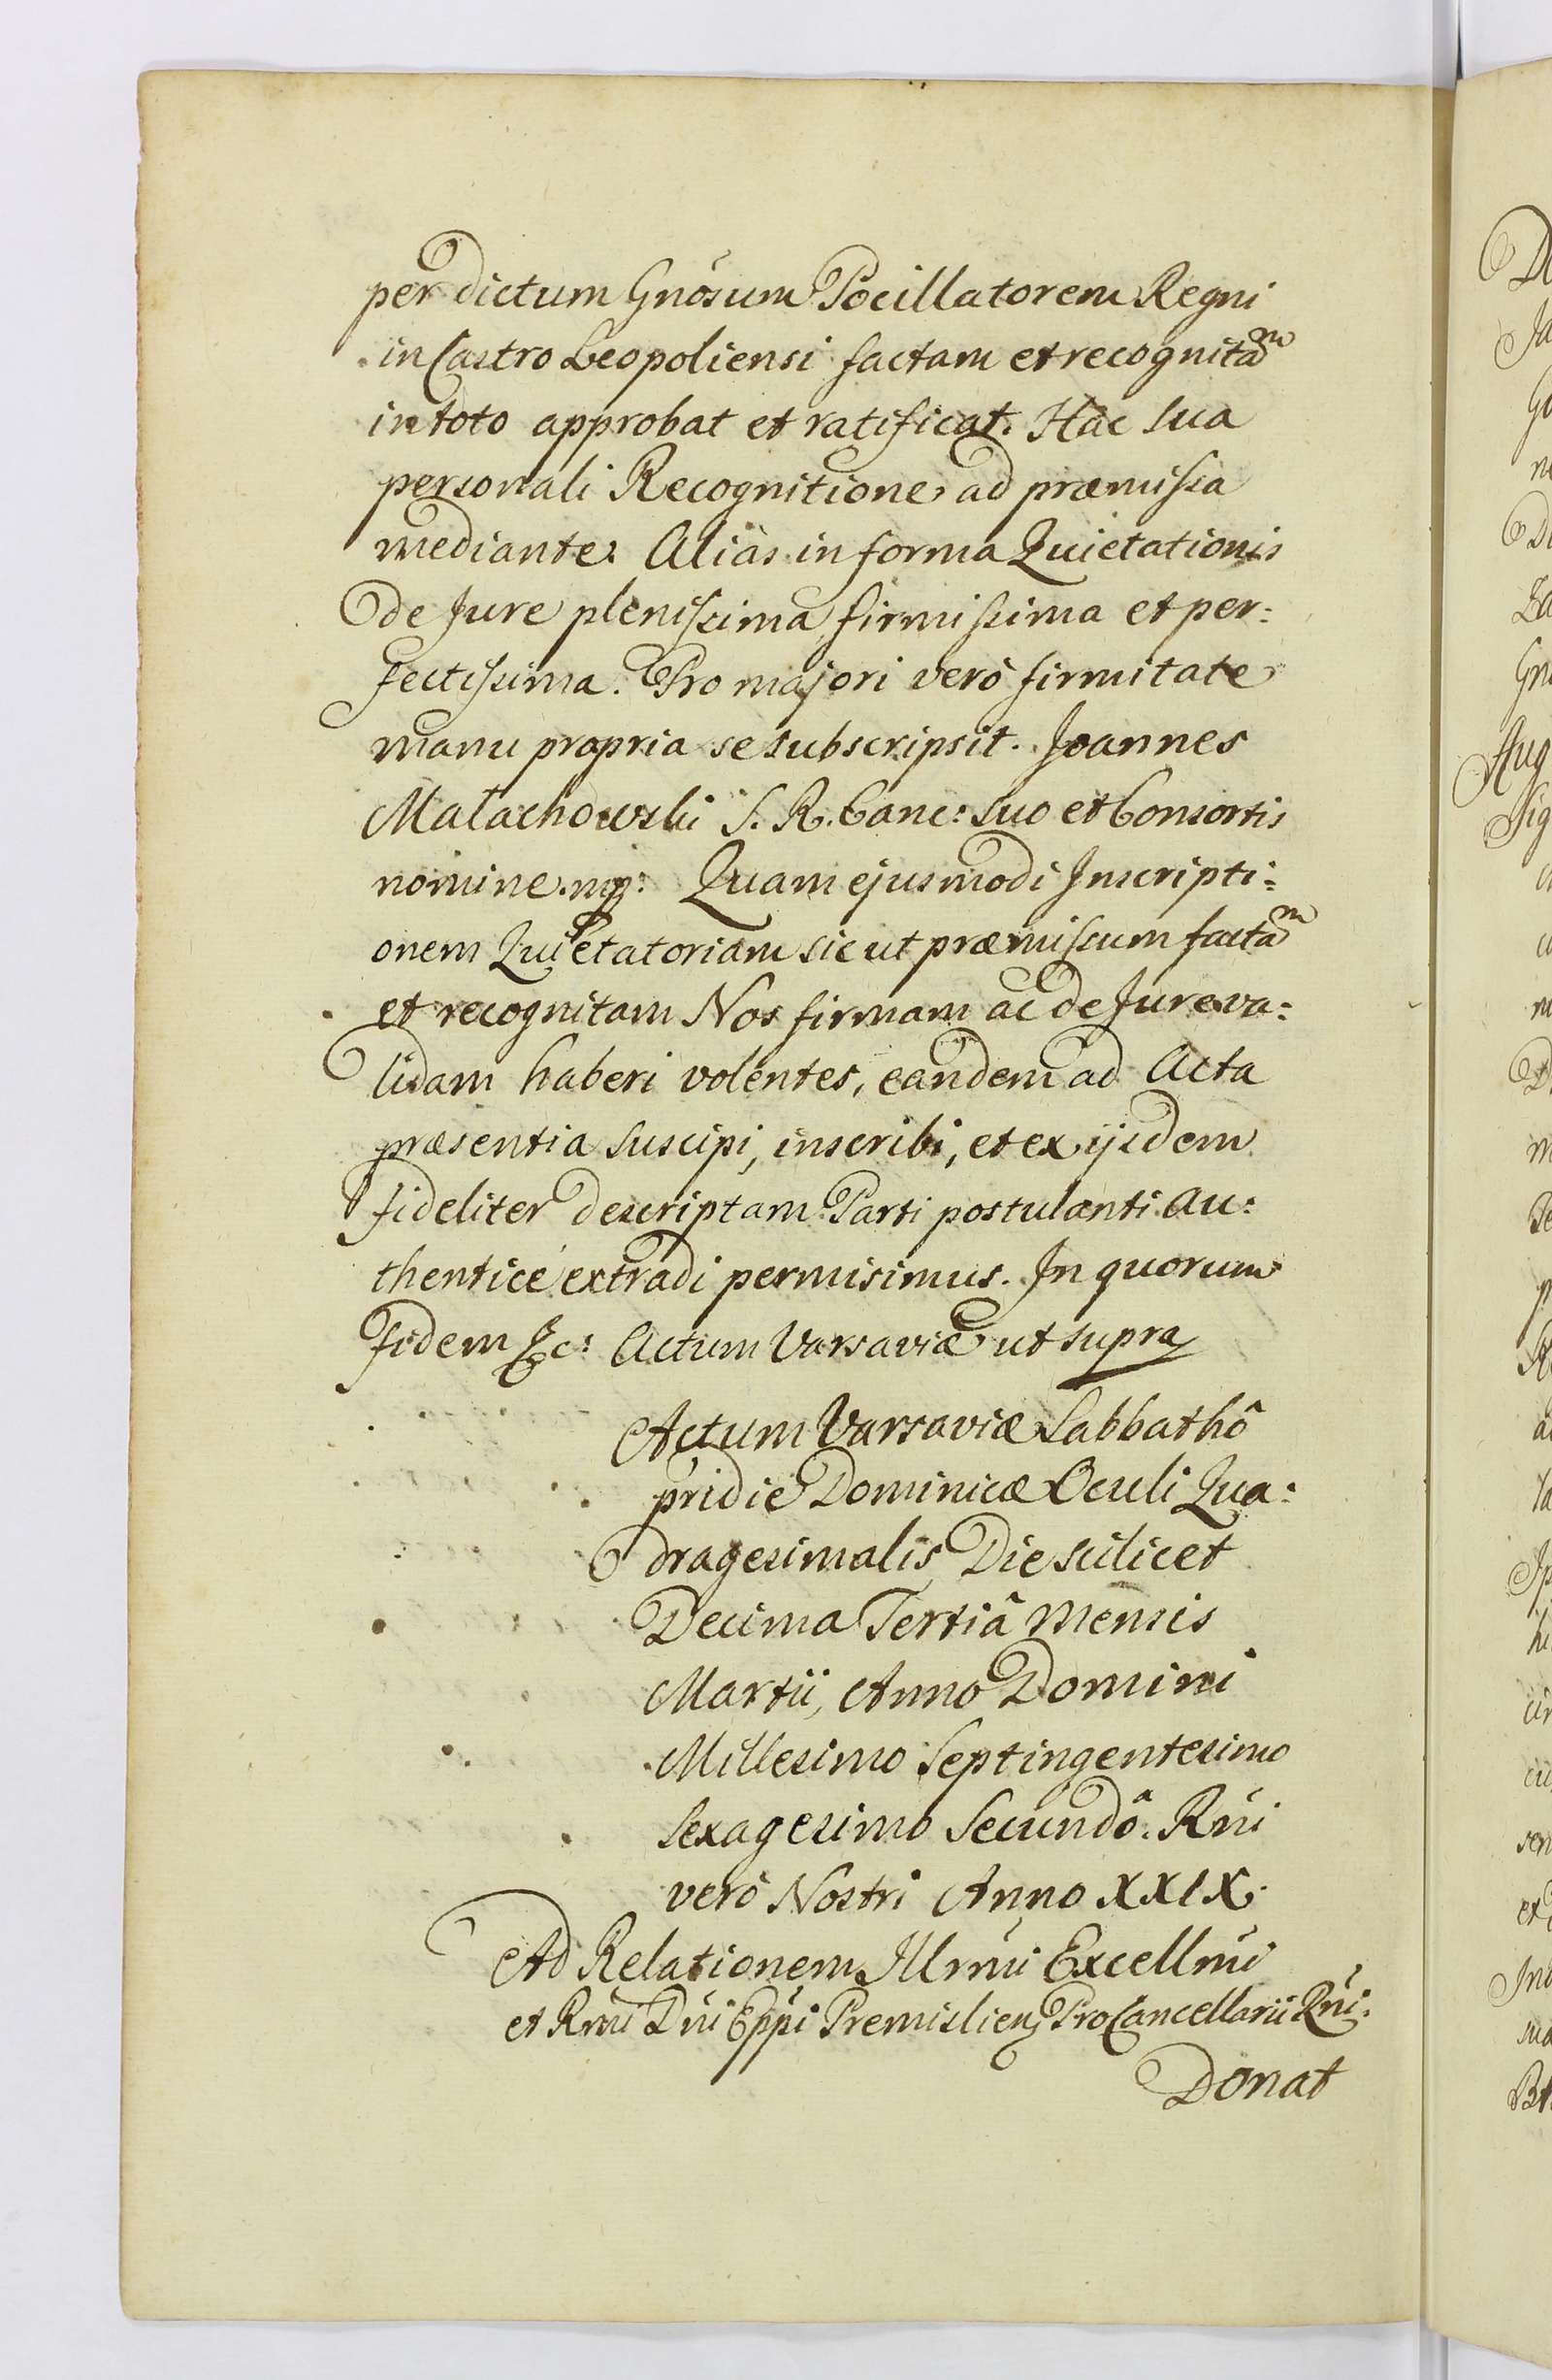 per dictum Gnosum Pocillatorem Regni
in Castro Leopoliensi factam et recognitam
in toto approbat et ratificat. Hac sua
personali Recognitione ad præmissa
mediante. Aliàs in forma Quietationis
de Jure plenissima, firmissima et per=
fectissima. Pro majori verò firmitate
manu propria se subscripsit. Joannes
Małachowski S. R. Canc: suo et Consortis
nomine. mp: Quam ejusmodi Inscripti=
onem Quietatoriam sic ut præmissum factam
et recognitam Nos firmam ac de Jure va=
lidam haberi volentes, eandem ad Acta
præsentia suscipi, inscribi, et ex ijsdem
fideliter descriptam Parti postulanti au=
thenticè extradi permisimus. In quorum
fidem &c: Actum Varsaviæ ut supra
Actum Varsaviæ Sabbathô
pridie Dominicæ Oculi Qua=
dragesimalis Die scilicet
Decima Tertiâ Mensis
Martii, Anno Domini
Millesimo Septingentesimo
Sexagesimo Secundô. Rni
verò Nostri Anno XXIX.
Ad Relationem Illrmi Excellmi
et Rmi Dni Eppi Premisliens ProCancellarii Rni.
Donat